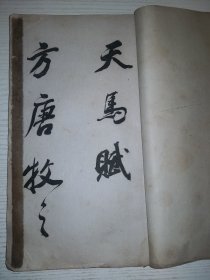 天馬賦
方唐牧之